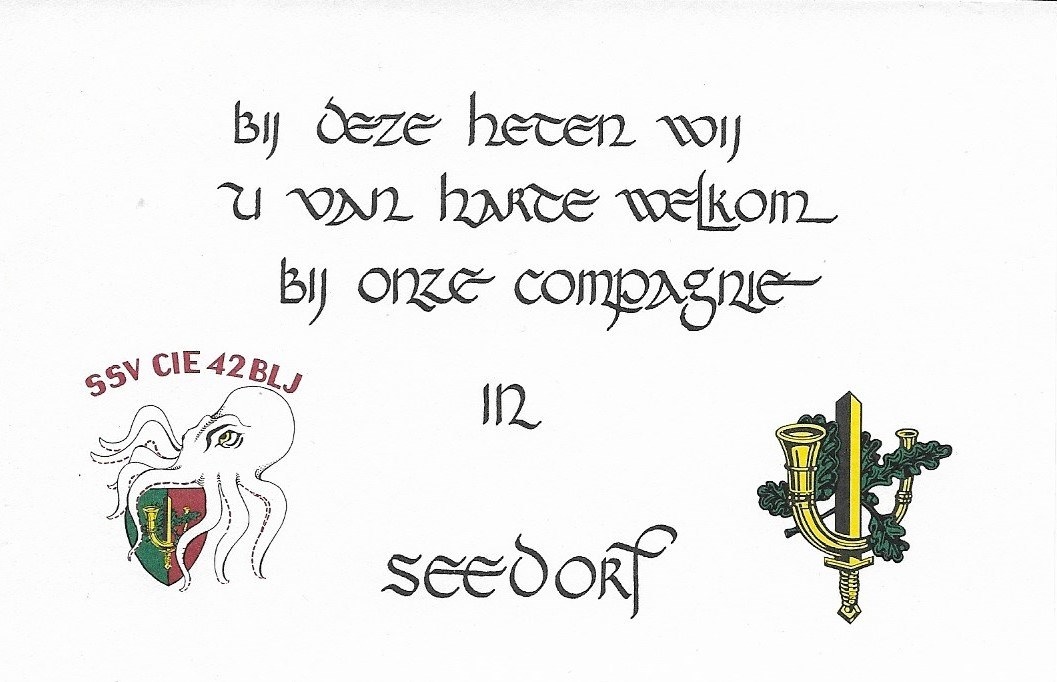 Bij deze heten wij
u van harte welkom
bij onze compagnie
SSV CIE 42BLJ
in
Seedorf